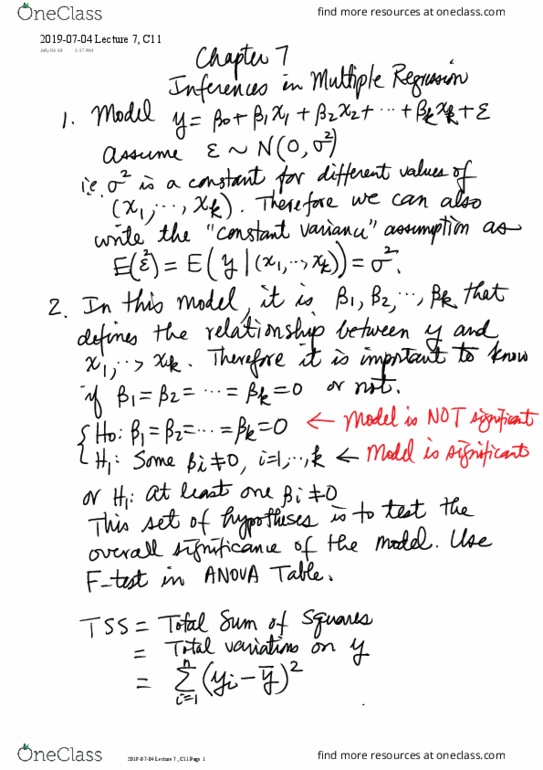 OneClass
find more resources at oneclass.com
2019-07-04 Lecture 7, C11
Chapter 7
Inferences in Multiple Regression
1. Model y = β₀ + β₁x₁ + β₂x₂ + ⋯ + βₖxₖ + ε
assume ε ~ N(0, σ²)
i.e. σ² is a constant for different values of
(x₁, ⋯, xₖ). Therefore we can also
write the "constant variance" assumption as
E(ε²) = E(y | (x₁, ⋯, xₖ)) = σ².
2. In this model, it is β₁, β₂, ⋯, βₖ that
defines the relationship between y and
x₁, ⋯, xₖ. Therefore it is important to know
if β₁ = β₂ = ⋯ = βₖ = 0 or not.
{ H₀: β₁ = β₂ = ⋯ = βₖ = 0 ← Model is NOT significant
H₁: Some βᵢ ≠ 0, i=1, ⋯, k ← Model is significant
or H₁: At least one βᵢ ≠ 0
This set of hypotheses is to test the
overall significance of the model. Use
F-test in ANOVA Table.
TSS = Total Sum of Squares
= Total variations on y
= Σᵢ₌₁ⁿ (yᵢ − ȳ)²
2019-07-04 Lecture 7, C11 Page 1
OneClass
find more resources at oneclass.com